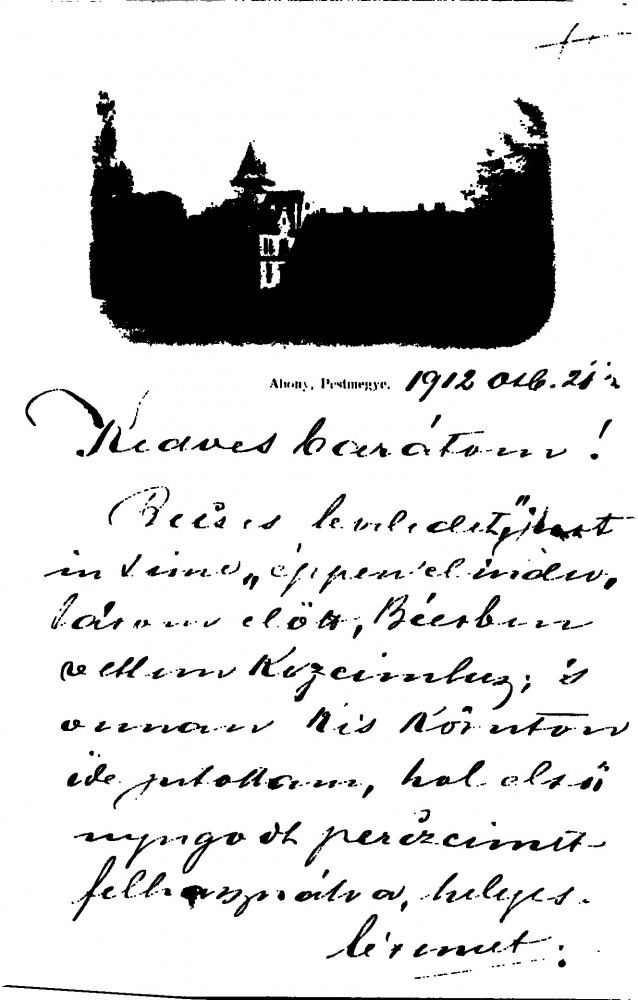 Abony, Pestmegye. 1912 Okt. 21 én
Kedves barátom!
Becses leveledet „just
in time„ éppen elindu„
lásom előtt, Bécsben
vettem kézeimhez; 's
onnan kis körúton
ide jutottam, hol első
nyugodt perczeimet
felhasználva, helyes-
lésemet: